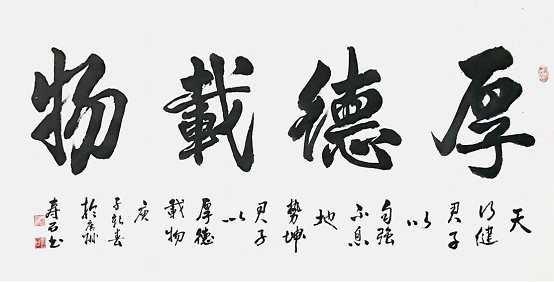 厚德載物
天
行健
君子
以
自强
不息
地
勢坤
君子
以
厚德
載物
庚
子春
於广州
寿石书